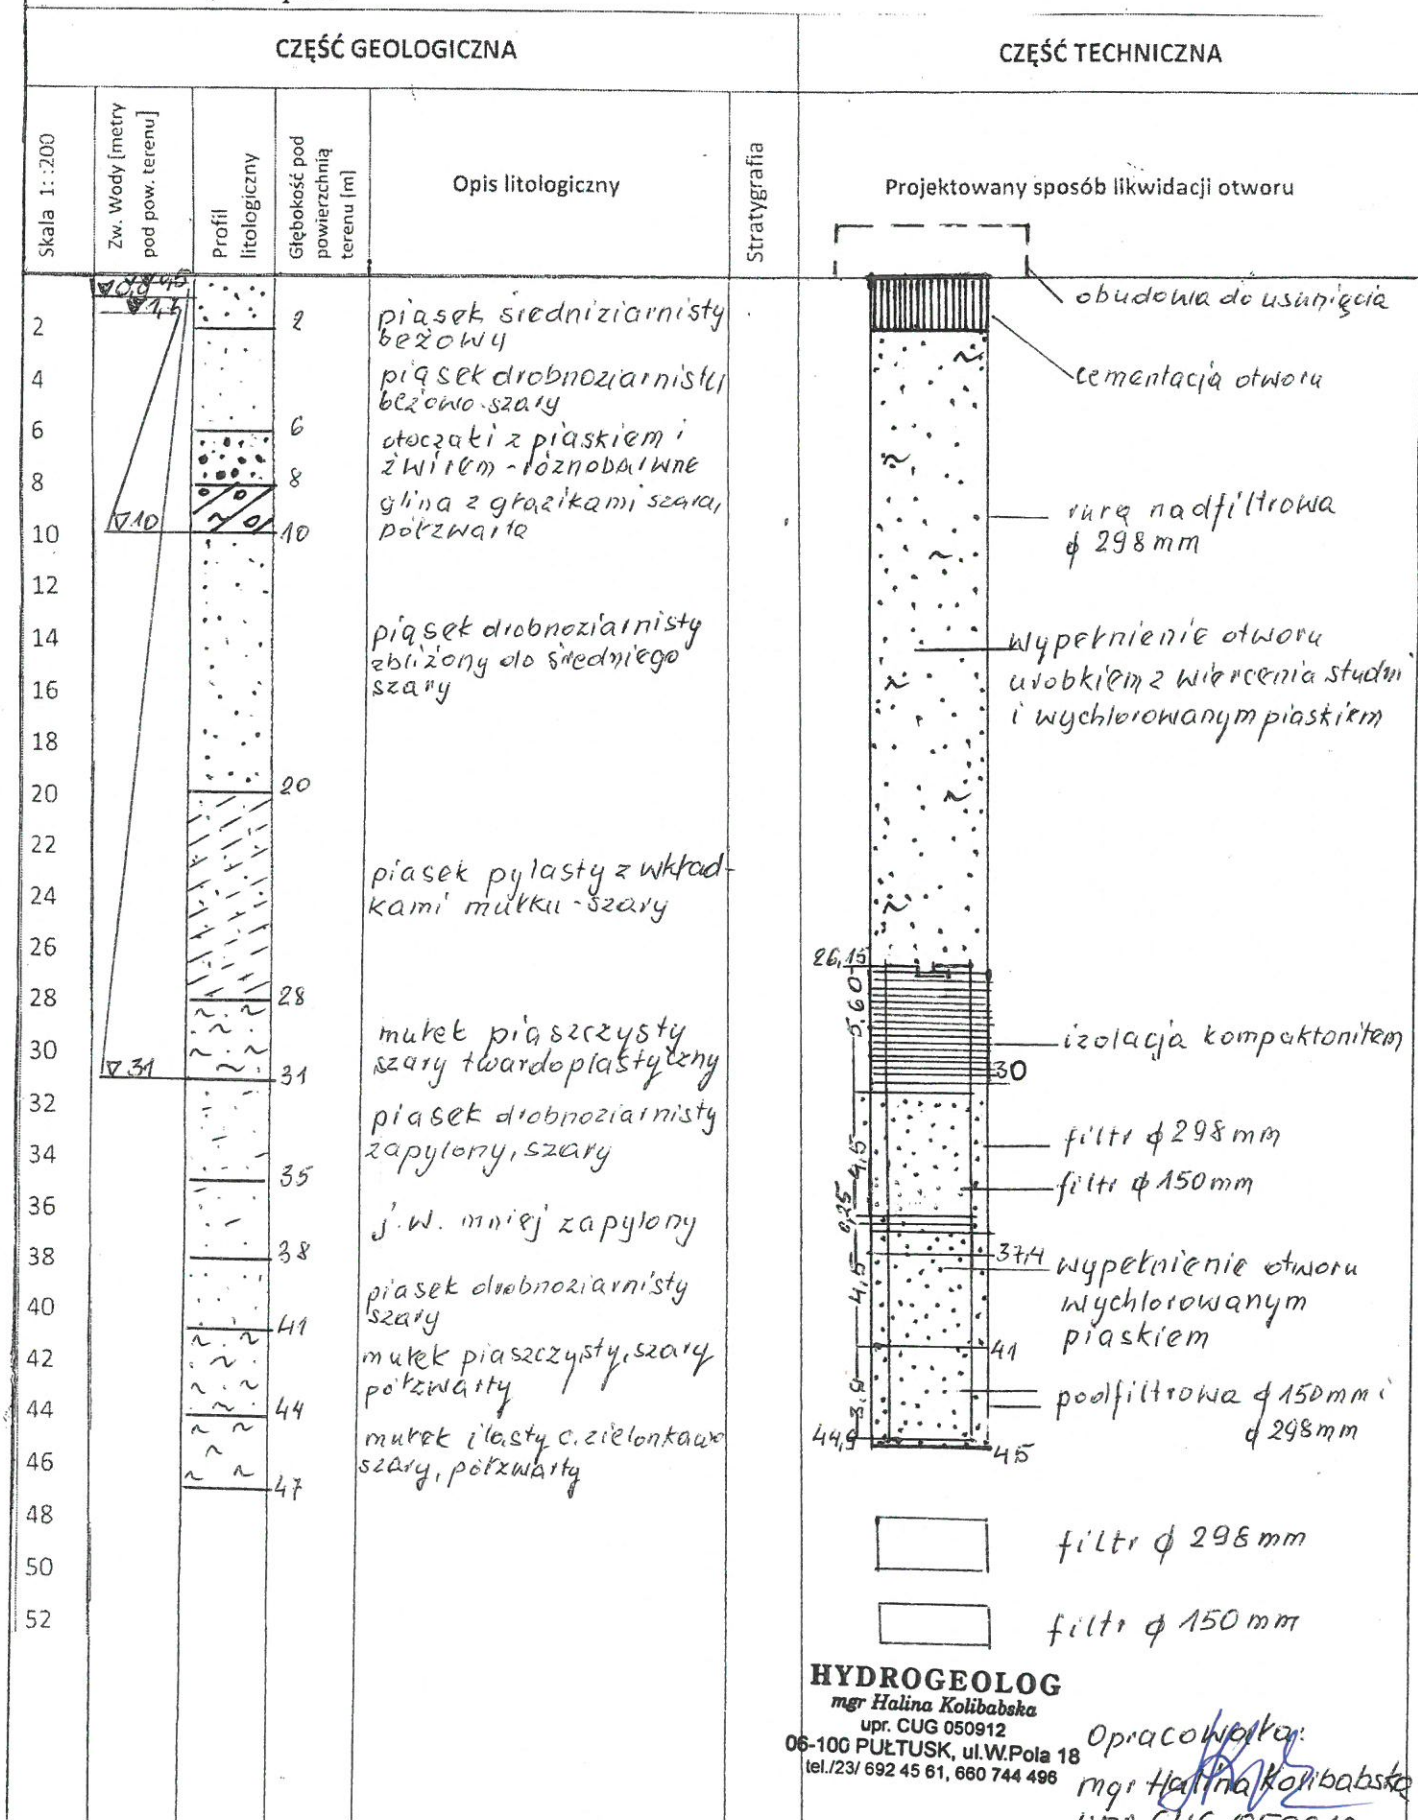 CZĘŚĆ GEOLOGICZNA
CZĘŚĆ TECHNICZNA
Skala 1::200
Zw. Wody [metry
pod pow. terenu]
Profil
litologiczny
Głębokość pod
powierzchnią
terenu [m]
Opis litologiczny
Stratygrafia
Projektowany sposób likwidacji otworu
2
4
6
8
10
12
14
16
18
20
22
24
26
28
30
32
34
36
38
40
42
44
46
48
50
52
10
31
2
6
8
10
20
28
31
35
38
41
44
47
piasek średniziarnisty
beżowy
piasek drobnoziarnisty
beżowo-szary
otoczaki z piaskiem i
żwirem - różnobarwne
glina z głazikami szara,
półzwarta
piasek drobnoziarnisty
zbliżony do średniego
szary
piasek pylasty z wkład-
kami mułku - szary
mułek piaszczysty
szary twardoplastyczny
piasek drobnoziarnisty
zapylony, szary
j.w. mniej zapylony
piasek drobnoziarnisty
szary
mułek piaszczysty, szary
półzwarty
mułek ilasty c.zielonkawo
szary, półzwarty
obudowa do usunięcia
cementacja otworu
rura nadfiltrowa
ϕ 298 mm
wypełnienie otworu
urobkiem z wiercenia studni
i wychlorowanym piaskiem
26,15
5,60
izolacja kompaktonitem
30
filtr ϕ 298 mm
4,5
filtr ϕ 150 mm
0,25
37,4
wypełnienie otworu
wychlorowanym
piaskiem
4,5
41
podfiltrowa ϕ 150 mm i
ϕ 298 mm
3,9
44,9
45
filtr ϕ 298 mm
filtr ϕ 150 mm
HYDROGEOLOG
mgr Halina Kolibabska
upr. CUG 050912
06-100 PUŁTUSK, ul.W.Pola 18
tel./23/ 692 45 61, 660 744 496
Opracowała:
mgr Halina Kolibabska